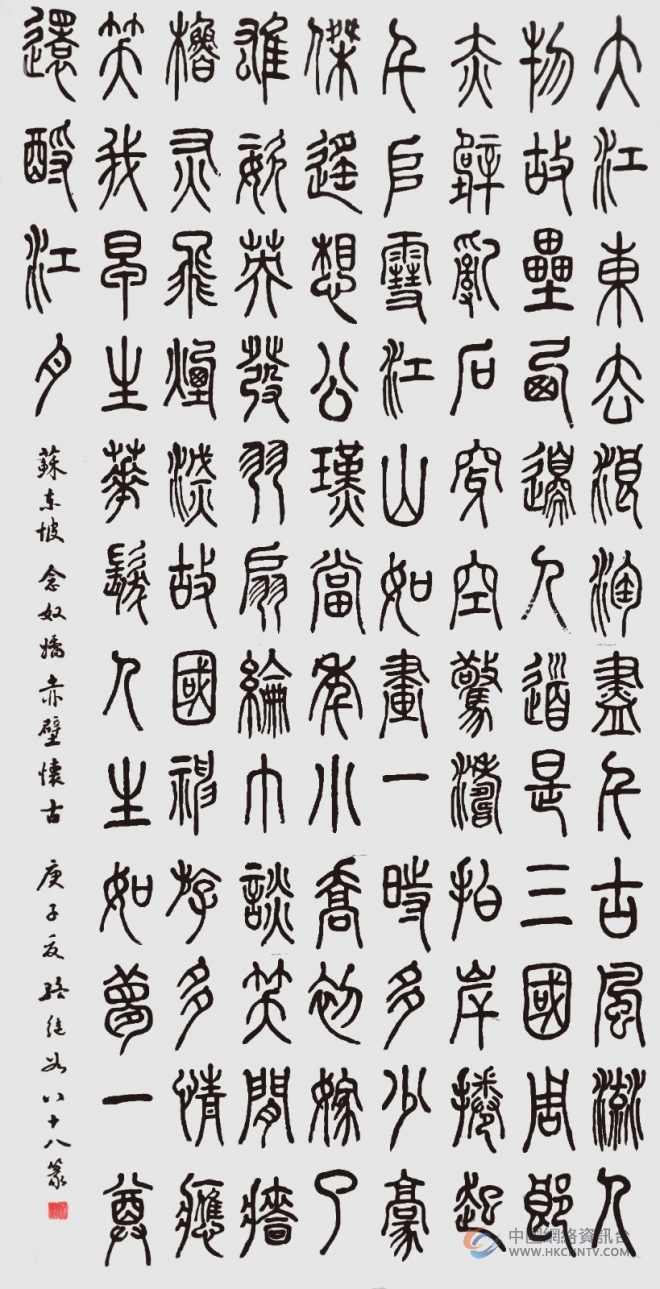 大江東去浪淘盡千古風流人
物故壘西邊人道是三國周郎
赤壁亂石穿空驚濤拍岸捲起
千𠂤雪江山如畫一時多少豪
傑遙想公瑾當年小喬初嫁了
雄姿英發羽扇綸巾談笑間牆
櫓灰飛煙滅故國神游多情應
笑我早生華髮人生如夢一尊
還酹江月
蘇東坡 念奴嬌 赤壁懷古 庚子夏 八十八篆
中國網絡資訊台
WWW.HKCHNTV.COM